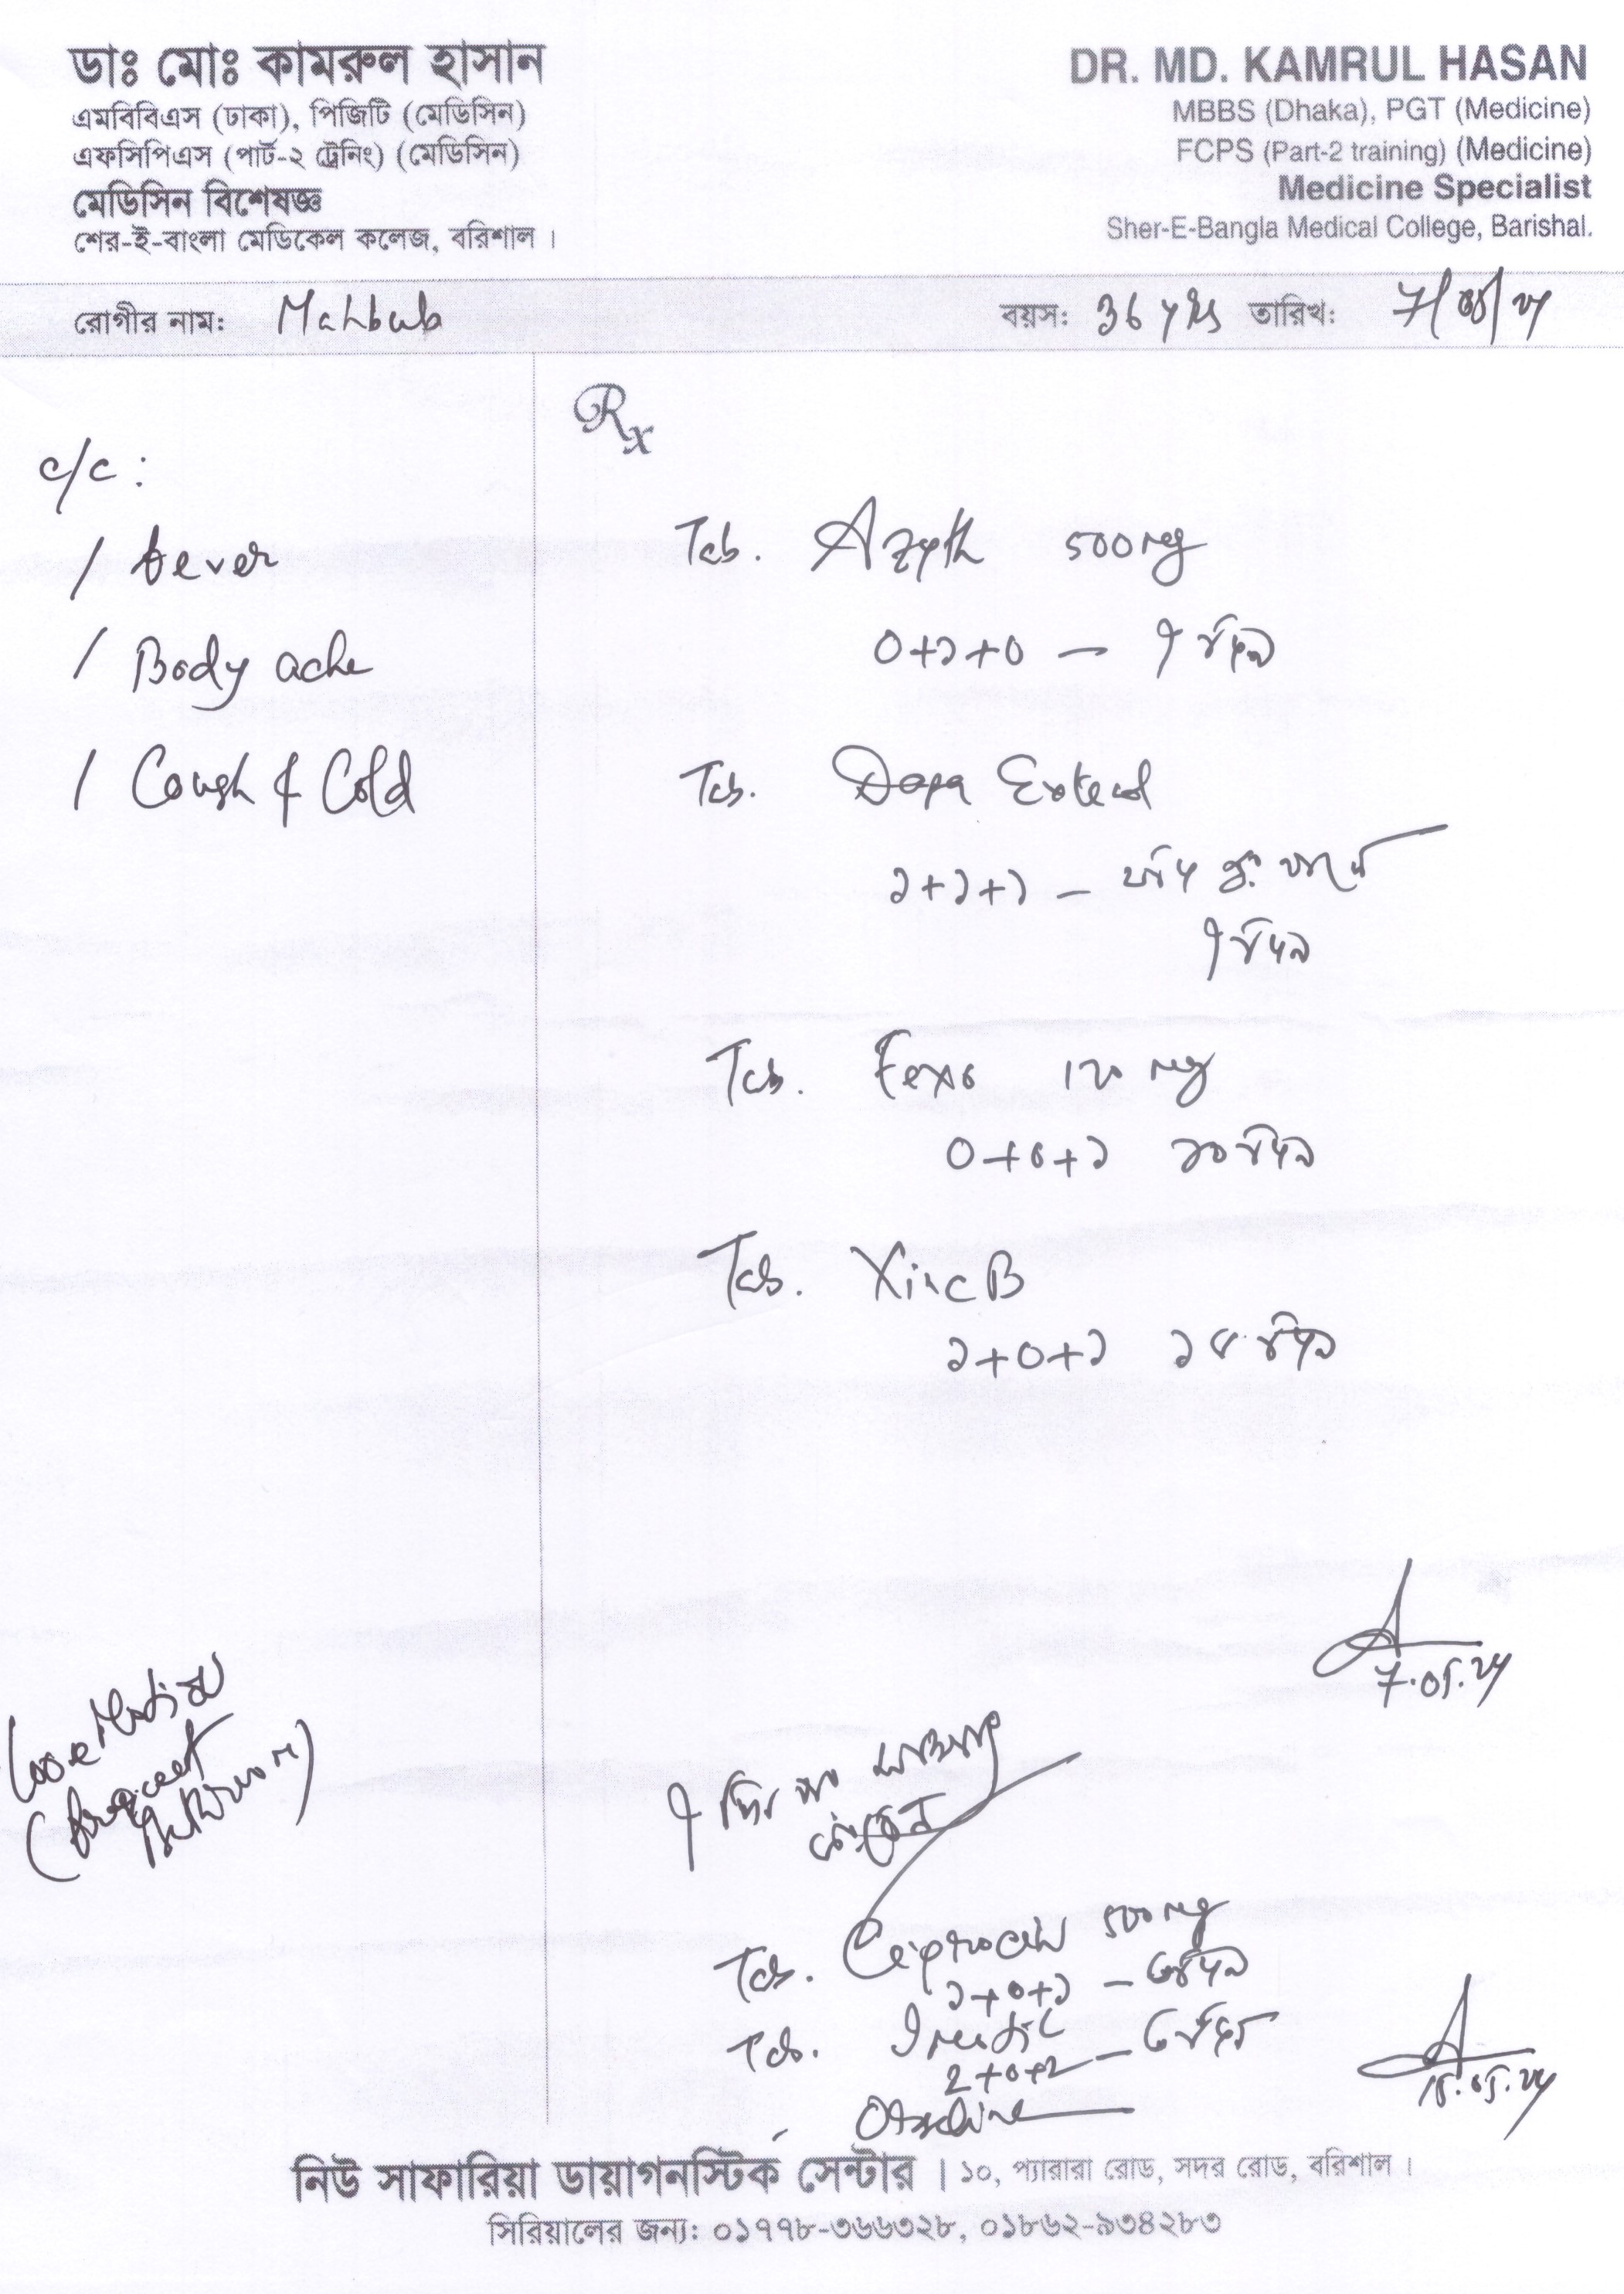 ডাঃ মোঃ কামরুল হাসান
এমবিবিএস (ঢাকা), পিজিটি (মেডিসিন)
এফসিপিএস (পার্ট-২ ট্রেনিং) (মেডিসিন)
মেডিসিন বিশেষজ্ঞ
শের-ই-বাংলা মেডিকেল কলেজ, বরিশাল।
DR. MD. KAMRUL HASAN
MBBS (Dhaka), PGT (Medicine)
FCPS (Part-2 training) (Medicine)
Medicine Specialist
Sher-E-Bangla Medical College, Barishal.
রোগীর নাম: Mahbub বয়স: 36 yrs তারিখ: 7/05/24
c/c:
/ fever
/ Body ache
/ Cough & Cold
Rx
Tab. Azyth 500mg
০+১+০ — ৭ দিন
Tab. Napa Extend
১+১+১ —
৭ দিন
Tab. Fexo 120 mg
০+০+১ ১০ দিন
Tab. Xinc B
১+০+১ ১৫ দিন
7.05.24
Loose Motion
৭ দিন পর
Tab. Ciprocin 500mg
১+০+১ — ৩ দিন
Tab.
2+0+2 —
15.05.24
নিউ সাফারিয়া ডায়াগনস্টিক সেন্টার। ১০, প্যারারা রোড, সদর রোড, বরিশাল।
সিরিয়ালের জন্য: ০১৭৭৮-৩৬৬৩২৮, ০১৮৬২-৯৩৪২৮৩